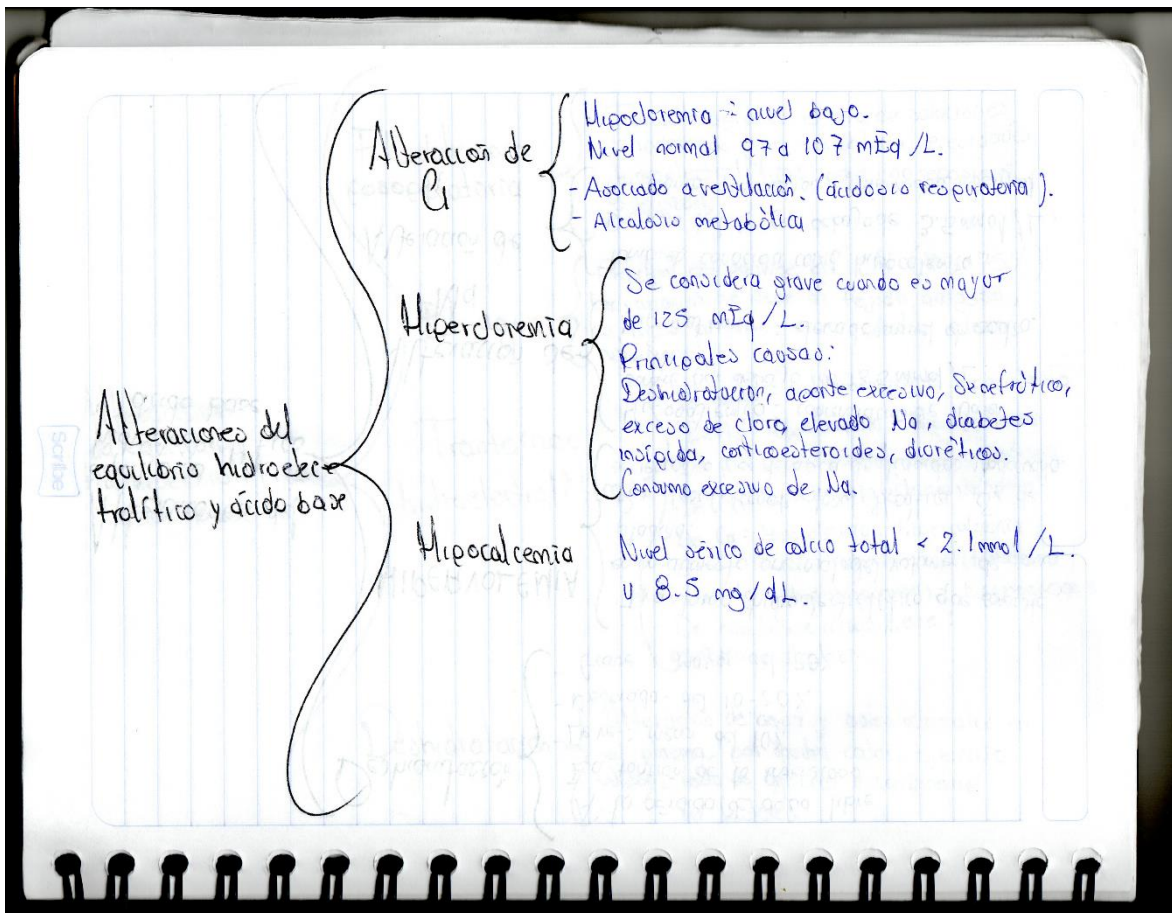 Alteraciones del
equilibrio hidroelec-
trolítico y ácido base
Alteración de
Cl
Hipocloremia = nivel bajo.
Nivel normal 97 a 107 mEq/L.
- Asociado a ventilación. (ácidosis respiratoria).
- Alcalosis metabólica
Hipercloremia
Se considera grave cuando es mayor
de 125 mEq/L.
Principales causas:
Deshidratación, aporte excesivo, Sx nefrótico,
exceso de cloro, elevado Na, diabetes
insípida, corticoesteroides, diuréticos.
Consumo excesivo de Na.
Hipocalcemia
Nivel sérico de calcio total < 2.1 mmol/L.
u 8.5 mg/dL.
Scribe